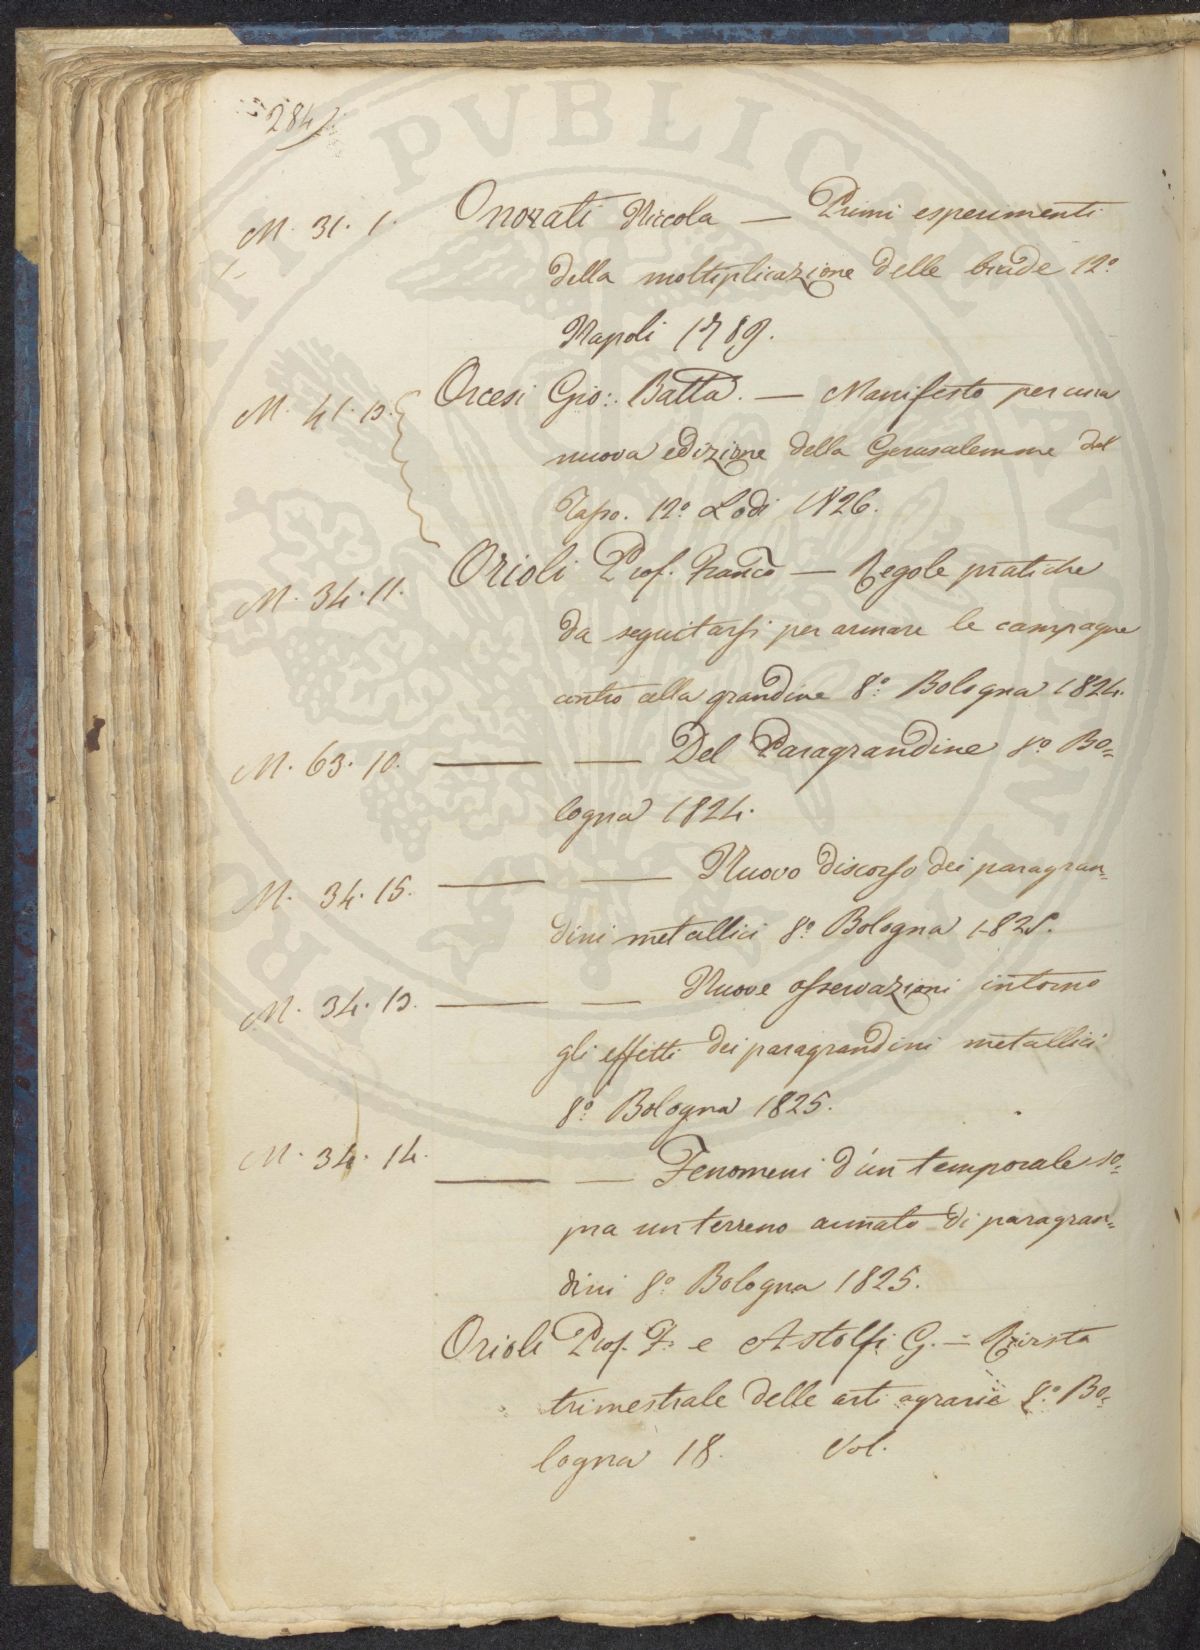 284
M. 31. 1. Onorati Niccola — Primi esperimenti
della moltiplicazione delle biade 12.º
Napoli 1789.
M. 41. 13. Orcesi Gio: Batta. — Manifesto per una
nuova edizione della Gerusalemme del
Tasso. 12.º Lodi 1826.
M. 34. 11. Orioli Prof. Franco — Regole pratiche
da seguitarsi per armare le campagne
contro alla grandine 8.º Bologna 1824.
M. 63. 10. — — Del Paragrandine 8.º Bo=
logna 1824.
M. 34. 15. — — Nuovo discorso dei paragran=
dini metallici 8.º Bologna 1825.
M. 34. 13. — — Nuove osservazioni intorno
gli effetti dei paragrandini metallici
8.º Bologna 1825.
M. 34. 14. — — Fenomeni d'un temporale so=
pra un terreno armato di paragran=
dini 8.º Bologna 1825.
Orioli Prof. F. e Astolfi G. = Rivista
trimestrale delle arti agrarie 8.º Bo=
logna 18 . Vol.
PUBLIC